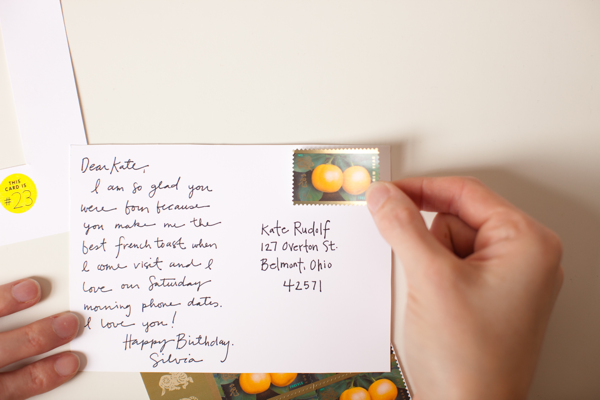 THIS
CARD IS
#23
Dear Kate,
I am so glad you
were born because
you make me the
best french toast when
I come visit and I
love our Saturday
morning phone dates.
I love you!
Happy Birthday.
Silvia
Kate Rudolf
127 Overton St.
Belmont, Ohio
42571